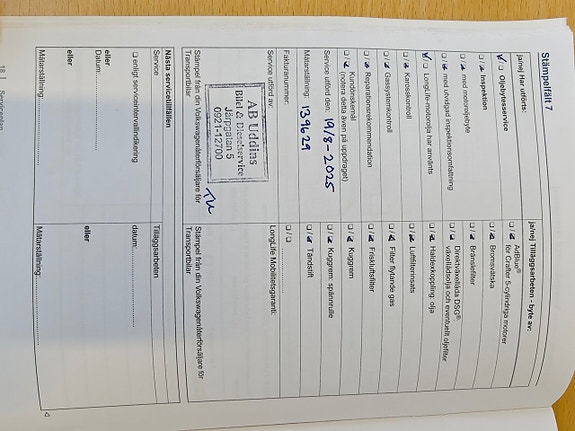 Stämpelfält 7
ja|nej Har utförts:
Oljebytesservice
med motoroljebyte
Inspektion
med utvidgad inspektionsomfattning
LongLife-motorolja har använts
Karosskontroll
Gassystemkontroll
Reparationsrekommendation
Kundönskemål
(notera detta även på uppdraget)
Service utförd den: 19/8-2025
Mätarställning: 139629
Fakturanummer:
Service utförd av:
AB Uddins
Bil-el & Dieselservice
Järpgatan 5
0921-12700
Stämpel från din Volkswagenåterförsäljare för
Transportbilar
ja|nej Tilläggsarbeten - byte av:
AdBlue®
för Crafter 5-cylindriga motorer
Bromsvätska
Bränslefilter
Direktväxellåda DSG®:
växellådsolja och eventuellt oljefilter
Haldexkoppling: olja
Luftfilterinsats
Filter flytande gas
Friskluftsfilter
Kuggrem
Kuggrem: spännrulle
Tändstift
LongLife Mobilitetsgaranti:
Stämpel från din Volkswagenåterförsäljare för
Transportbilar
Nästa servicetillfällen
Service
enligt serviceintervallindikering
eller
Datum:
eller
Mätarställning:
Tilläggsarbeten
datum:
eller
Mätarställning:
18